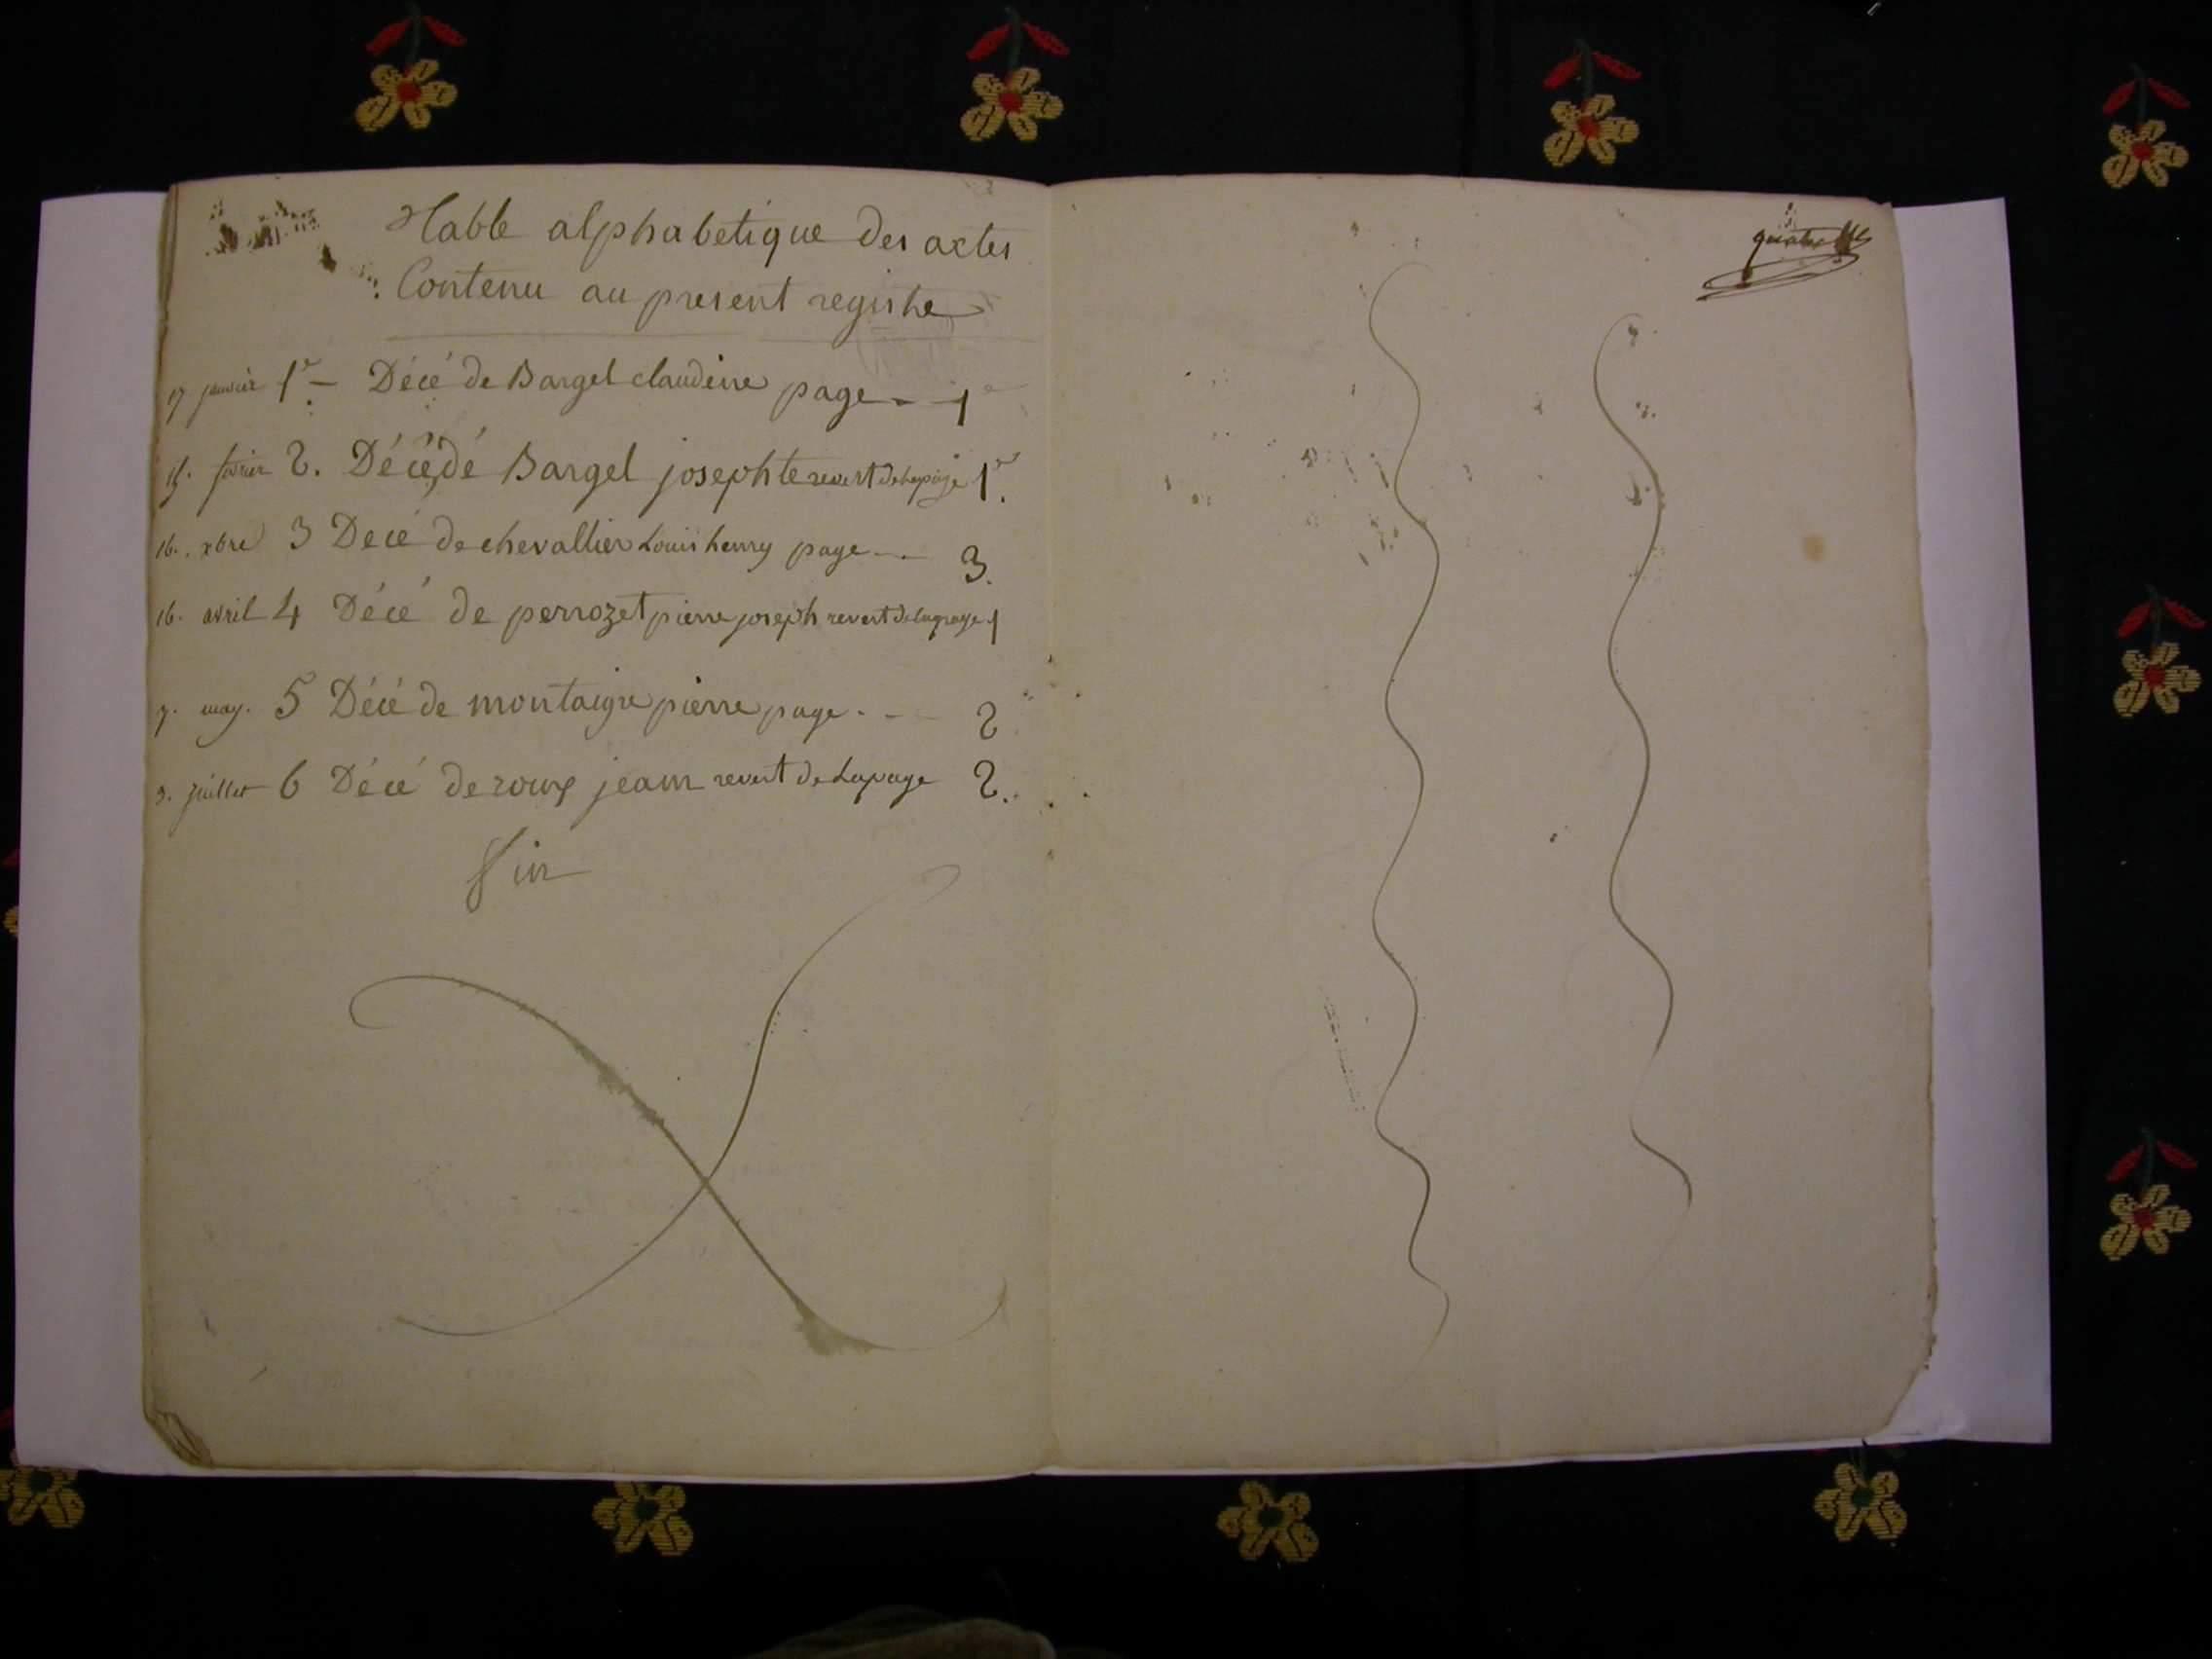 Table alphabetique des actes
Contenu au present registre
17. janvier 1er — Décé de Bargel claudine page - - 1er
15. fevrier 2. Décédé Bargel josephte revert de la page 1er.
16. xbre 3 Decé de chevallier Louis henry page - - 3.
16. avril 4 Décé de perrozet pierre joseph revert de la page 1
7. may. 5 Décé de montaigne pierre page. - - 2
9. juillet 6 Décé de roux jeam revert de La page 2.
fin